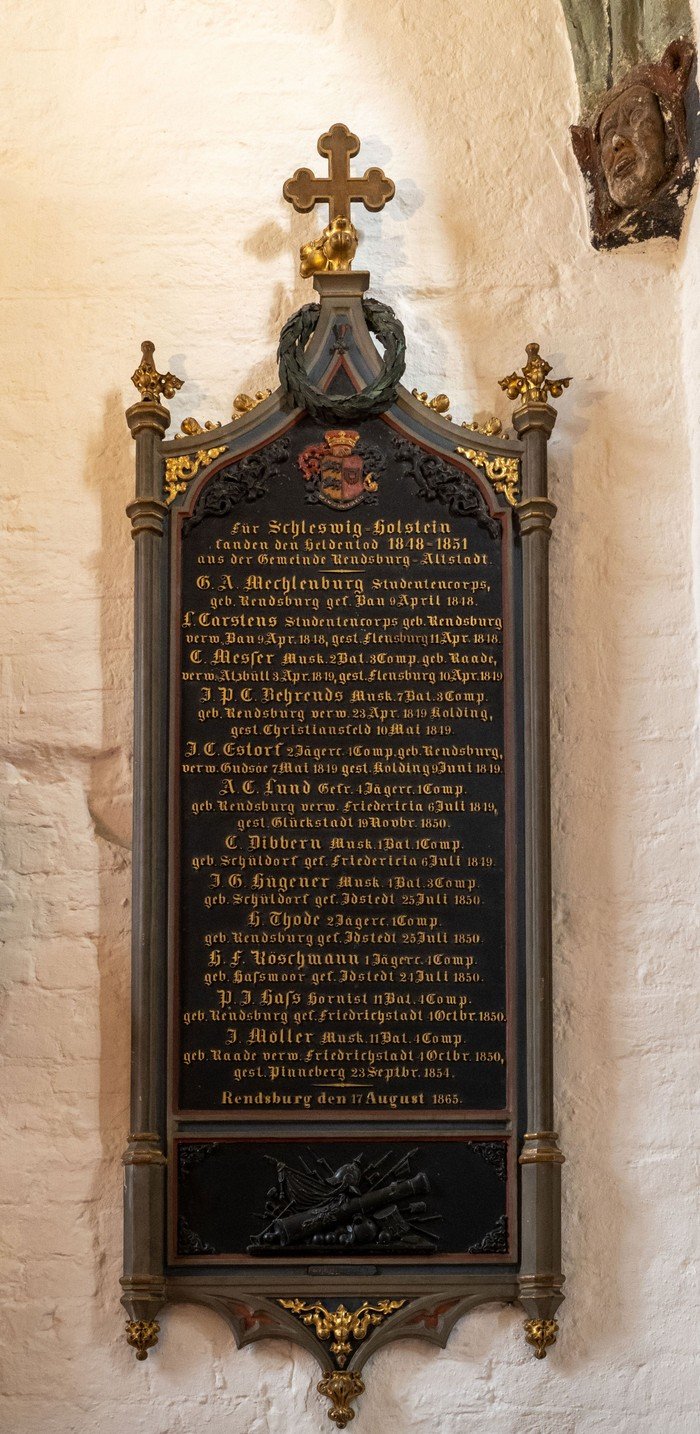 Für Schleswig-Holstein
fanden den Heldentod 1848-1851
aus der Gemeinde Rendsburg-Altstadt.
G. A. Mechlenburg Studentencorps,
geb. Rendsburg gef. Bau 9 April 1848.
L. Carstens Studentencorps geb. Rendsburg
verw. Bau 9 Apr. 1848, gest. Flensburg 11 Apr. 1848.
C. Messer Musk. 2 Bat. 3 Comp. geb. Raade,
verw. Atzbüll 3 Apr. 1849, gest. Flensburg 10 Apr. 1849
J. P. C. Behrends Musk. 7 Bat. 3 Comp.
geb. Rendsburg verw. 23 Apr. 1849 Kolding,
gest. Christiansfeld 10 Mai 1849.
J. C. Estorf 2 Jägerc. 4 Comp. geb. Rendsburg,
verw. Gudsöe 7 Mai 1849 gest. Kolding 9 Juni 1849.
A. C. Lund Gefr. 4 Jägerc. 1 Comp.
geb. Rendsburg verw. Friedericia 6 Juli 1849,
gest. Glückstadt 19 Novbr. 1850.
C. Dibbern Musk. 1 Bat. 1 Comp.
geb. Schüldorf gef. Friedericia 6 Juli 1849.
J. G. Hügener Musk. 4 Bat. 3 Comp.
geb. Schüldorf gef. Idstedt 25 Juli 1850.
H. Thode 2 Jägerc. 1 Comp.
geb. Rendsburg gef. Idstedt 25 Juli 1850.
H. F. Röschmann 1 Jägerc. 4 Comp.
geb. Haſsmoor gef. Idstedt 24 Juli 1850.
P. J. Haſs Hornist 11 Bat. 4 Comp.
geb. Rendsburg gef. Friedrichstadt 4 Octbr. 1850.
J. Möller Musk. 11 Bat. 4 Comp.
geb. Raade verw. Friedrichstadt 4 Octbr. 1850,
gest. Pinneberg 23 Septbr. 1854.
Rendsburg den 17 August 1865.